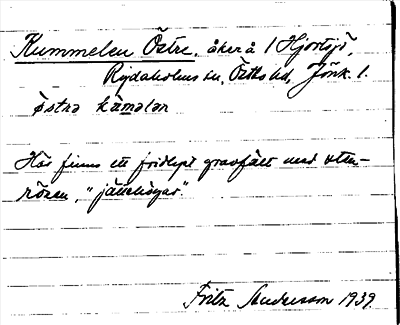 Kummelen Östre, åker å 1 Hjortsjö,
Rydaholms sn, Östbo hd, Jönk. l.
östrə kɷmələn
Här finns ett fridlyst gravfält med sten-
rösen, "jättehögar".
Fritz Andersson 1939